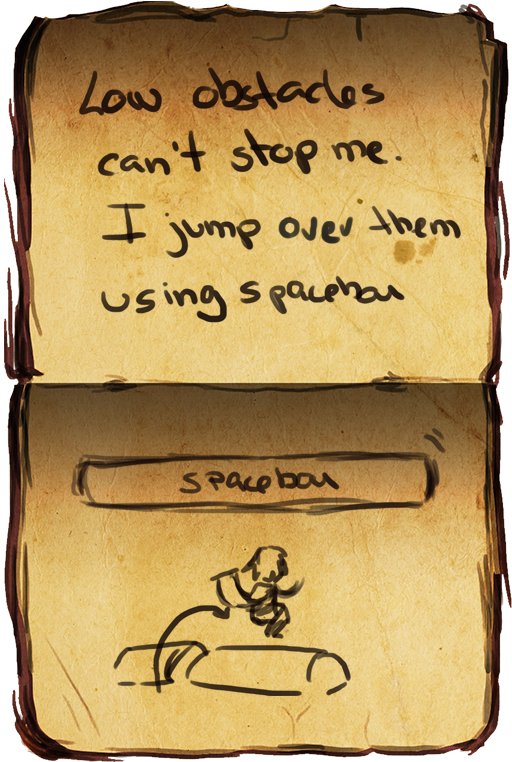 Low obstacles
can't stop me.
I jump over them
using spacebar
spacebar